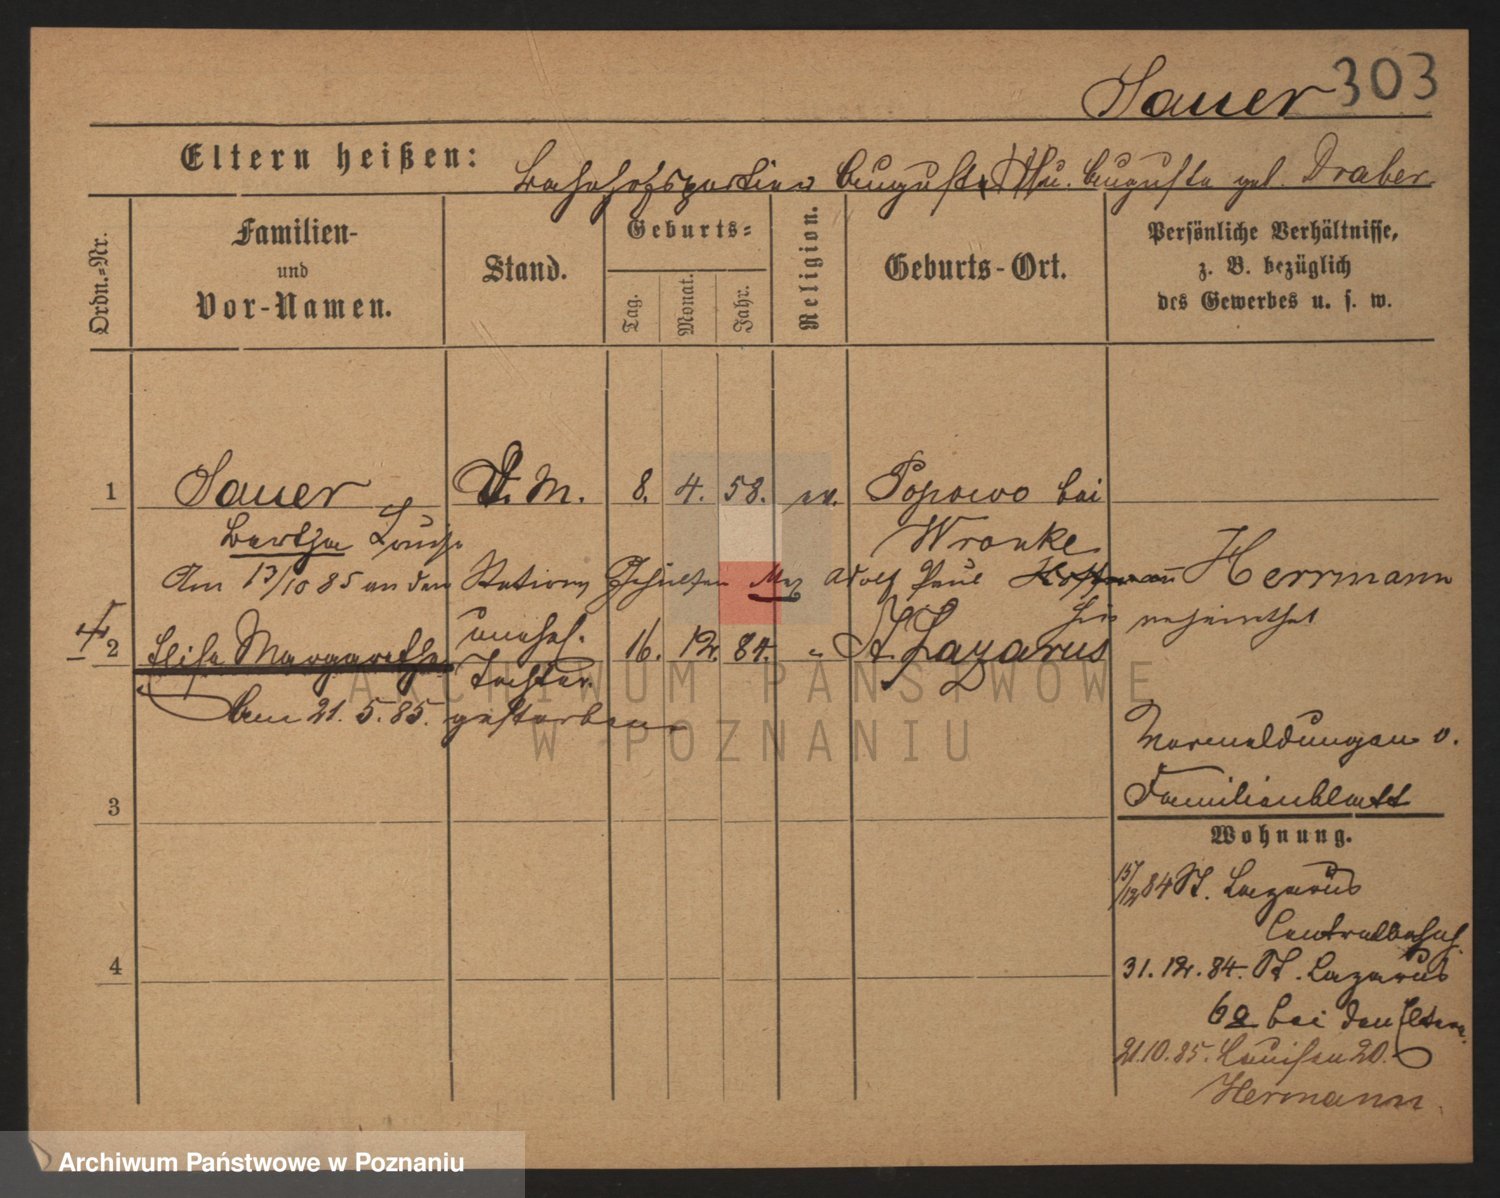 Sauer 303
Eltern heißen: Bahnhofsportier August u. Auguste geb. Draber.
Ordn.-Nr.
Familien-
und
Vor-Namen.
Stand.
Geburts-
Tag.
Monat.
Jahr.
Religion.
Geburts-Ort.
Persönliche Verhältnisse,
z. B. bezüglich
des Gewerbes u. s. w.
1 Sauer D. M. 8. 4. 58. ev. Popowo bei
Bertha Louise Wronke
Am 13/10 85 an den Stations Gehülfen Adolf Paul Herrmann
hier verheirathet
2 Elise Margarethe unehel. 16. 12. 84. " St. Lazarus
Tochter.
Am 21. 5. 85. gestorben
Vormeldungen v.
Familienblatt
3
Wohnung.
15/12 84 St. Lazarus
Centralbahnh.
4
31. 12. 84. St. Lazarus
6a bei den Eltern.
21.10.85. Louisen 20.
Hermann.
ARCHIWUM PAŃSTWOWE
W POZNANIU
Archiwum Państwowe w Poznaniu